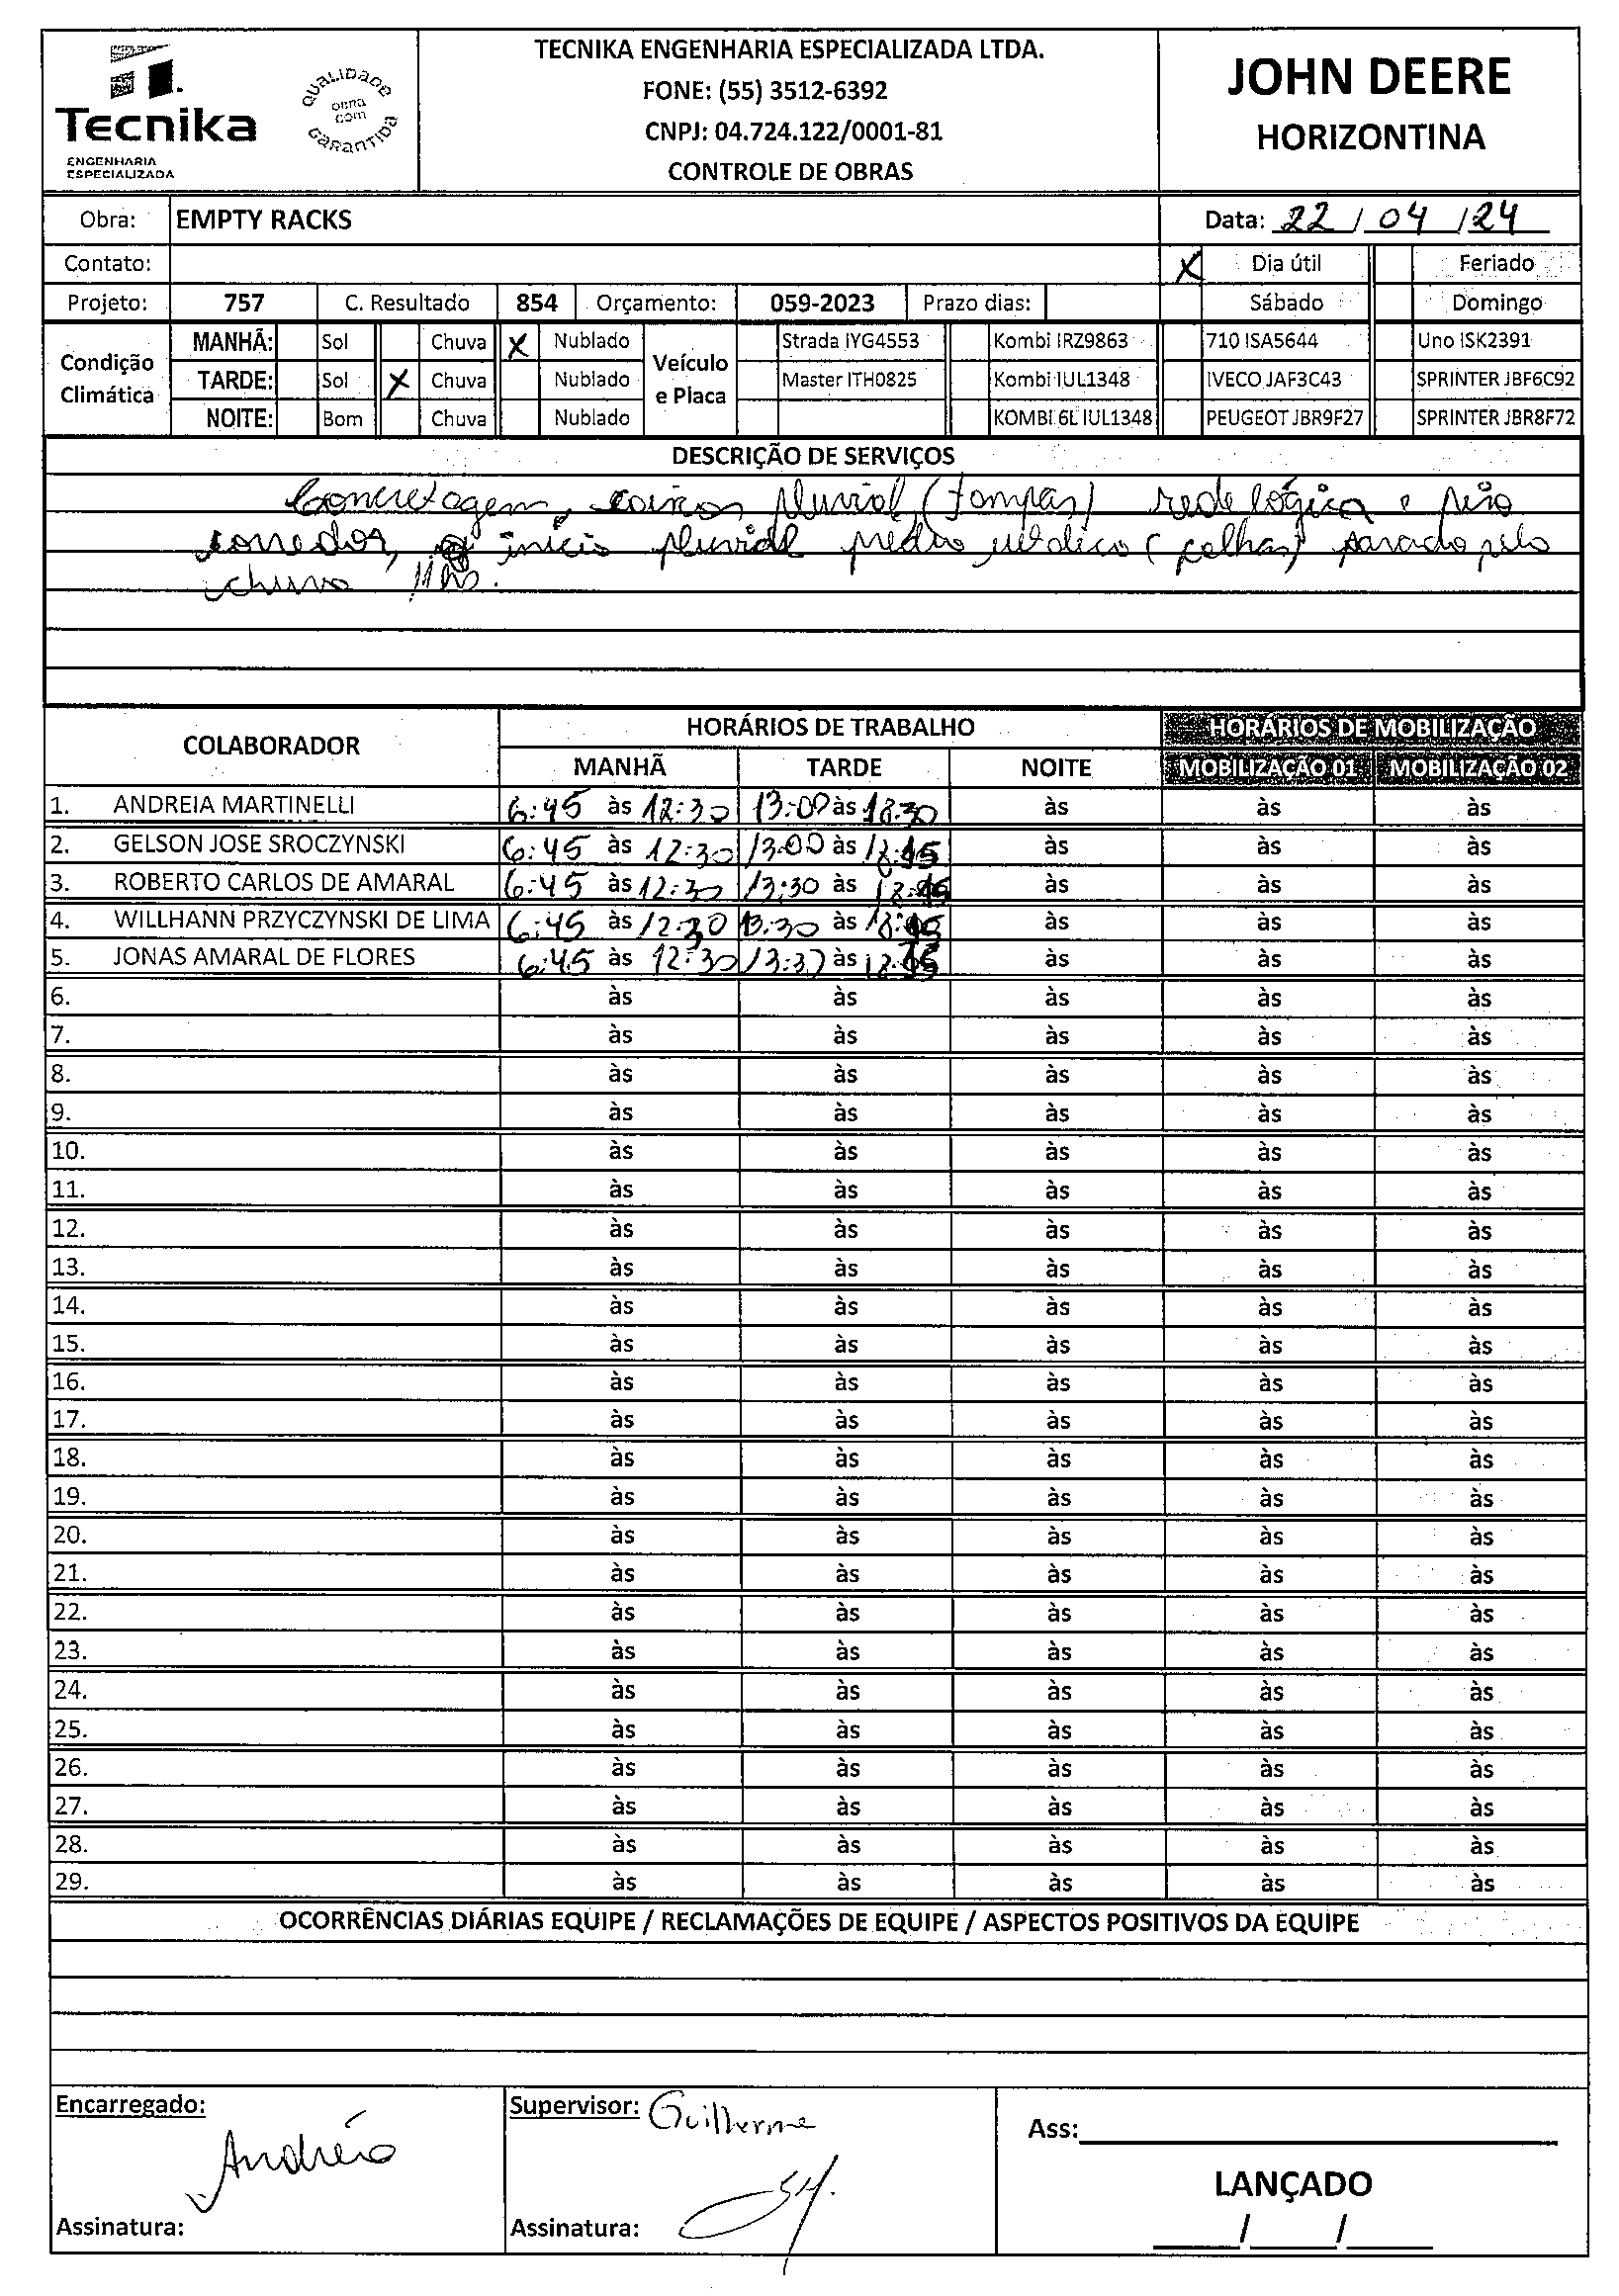 Tecnika
ENGENHARIA
ESPECIALIZADA
QUALIDADE
OBRA
COM
GARANTIDA
TECNIKA ENGENHARIA ESPECIALIZADA LTDA.
FONE: (55) 3512-6392
CNPJ: 04.724.122/0001-81
CONTROLE DE OBRAS
JOHN DEERE
HORIZONTINA
Obra: EMPTY RACKS Data: 22/04/24
Contato: X Dia útil Feriado
Projeto: 757 C. Resultado 854 Orçamento: 059-2023 Prazo dias: Sábado Domingo
Condição Climática
MANHÃ: Sol Chuva X Nublado
TARDE: Sol X Chuva Nublado
NOITE: Bom Chuva Nublado
Veículo e Placa
Strada IYG4553 Kombi IRZ9863 710 ISA5644 Uno ISK2391
Master ITH0825 Kombi IUL1348 IVECO JAF3C43 SPRINTER JBF6C92
KOMBI 6L IUL1348 PEUGEOT JBR9F27 SPRINTER JBR8F72
DESCRIÇÃO DE SERVIÇOS
Concretagem, pluvial, (tampas) rede lógica e piso
corredor, início pluvial prédio (calhas) parado pela
chuva 11hs.
COLABORADOR HORÁRIOS DE TRABALHO HORÁRIOS DE MOBILIZAÇÃO
MANHÃ TARDE NOITE MOBILIZAÇÃO 01 MOBILIZAÇÃO 02
1. ANDREIA MARTINELLI 6:45 às 12:30 13:00 às 18:30 às às às
2. GELSON JOSE SROCZYNSKI 6:45 às 12:30 13:00 às às às às
3. ROBERTO CARLOS DE AMARAL 6:45 às 12:30 13:30 às às às às
4. WILLHANN PRZYCZYNSKI DE LIMA 6:45 às 12:30 13:30 às às às às
5. JONAS AMARAL DE FLORES 6:45 às 12:30 às às às às
6. às às às às às
7. às às às às às
8. às às às às às
9. às às às às às
10. às às às às às
11. às às às às às
12. às às às às às
13. às às às às às
14. às às às às às
15. às às às às às
16. às às às às às
17. às às às às às
18. às às às às às
19. às às às às às
20. às às às às às
21. às às às às às
22. às às às às às
23. às às às às às
24. às às às às às
25. às às às às às
26. às às às às às
27. às às às às às
28. às às às às às
29. às às às às às
OCORRÊNCIAS DIÁRIAS EQUIPE / RECLAMAÇÕES DE EQUIPE / ASPECTOS POSITIVOS DA EQUIPE
Encarregado: Supervisor: Guilherme Ass:
Andréia
LANÇADO
Assinatura: Assinatura: / /